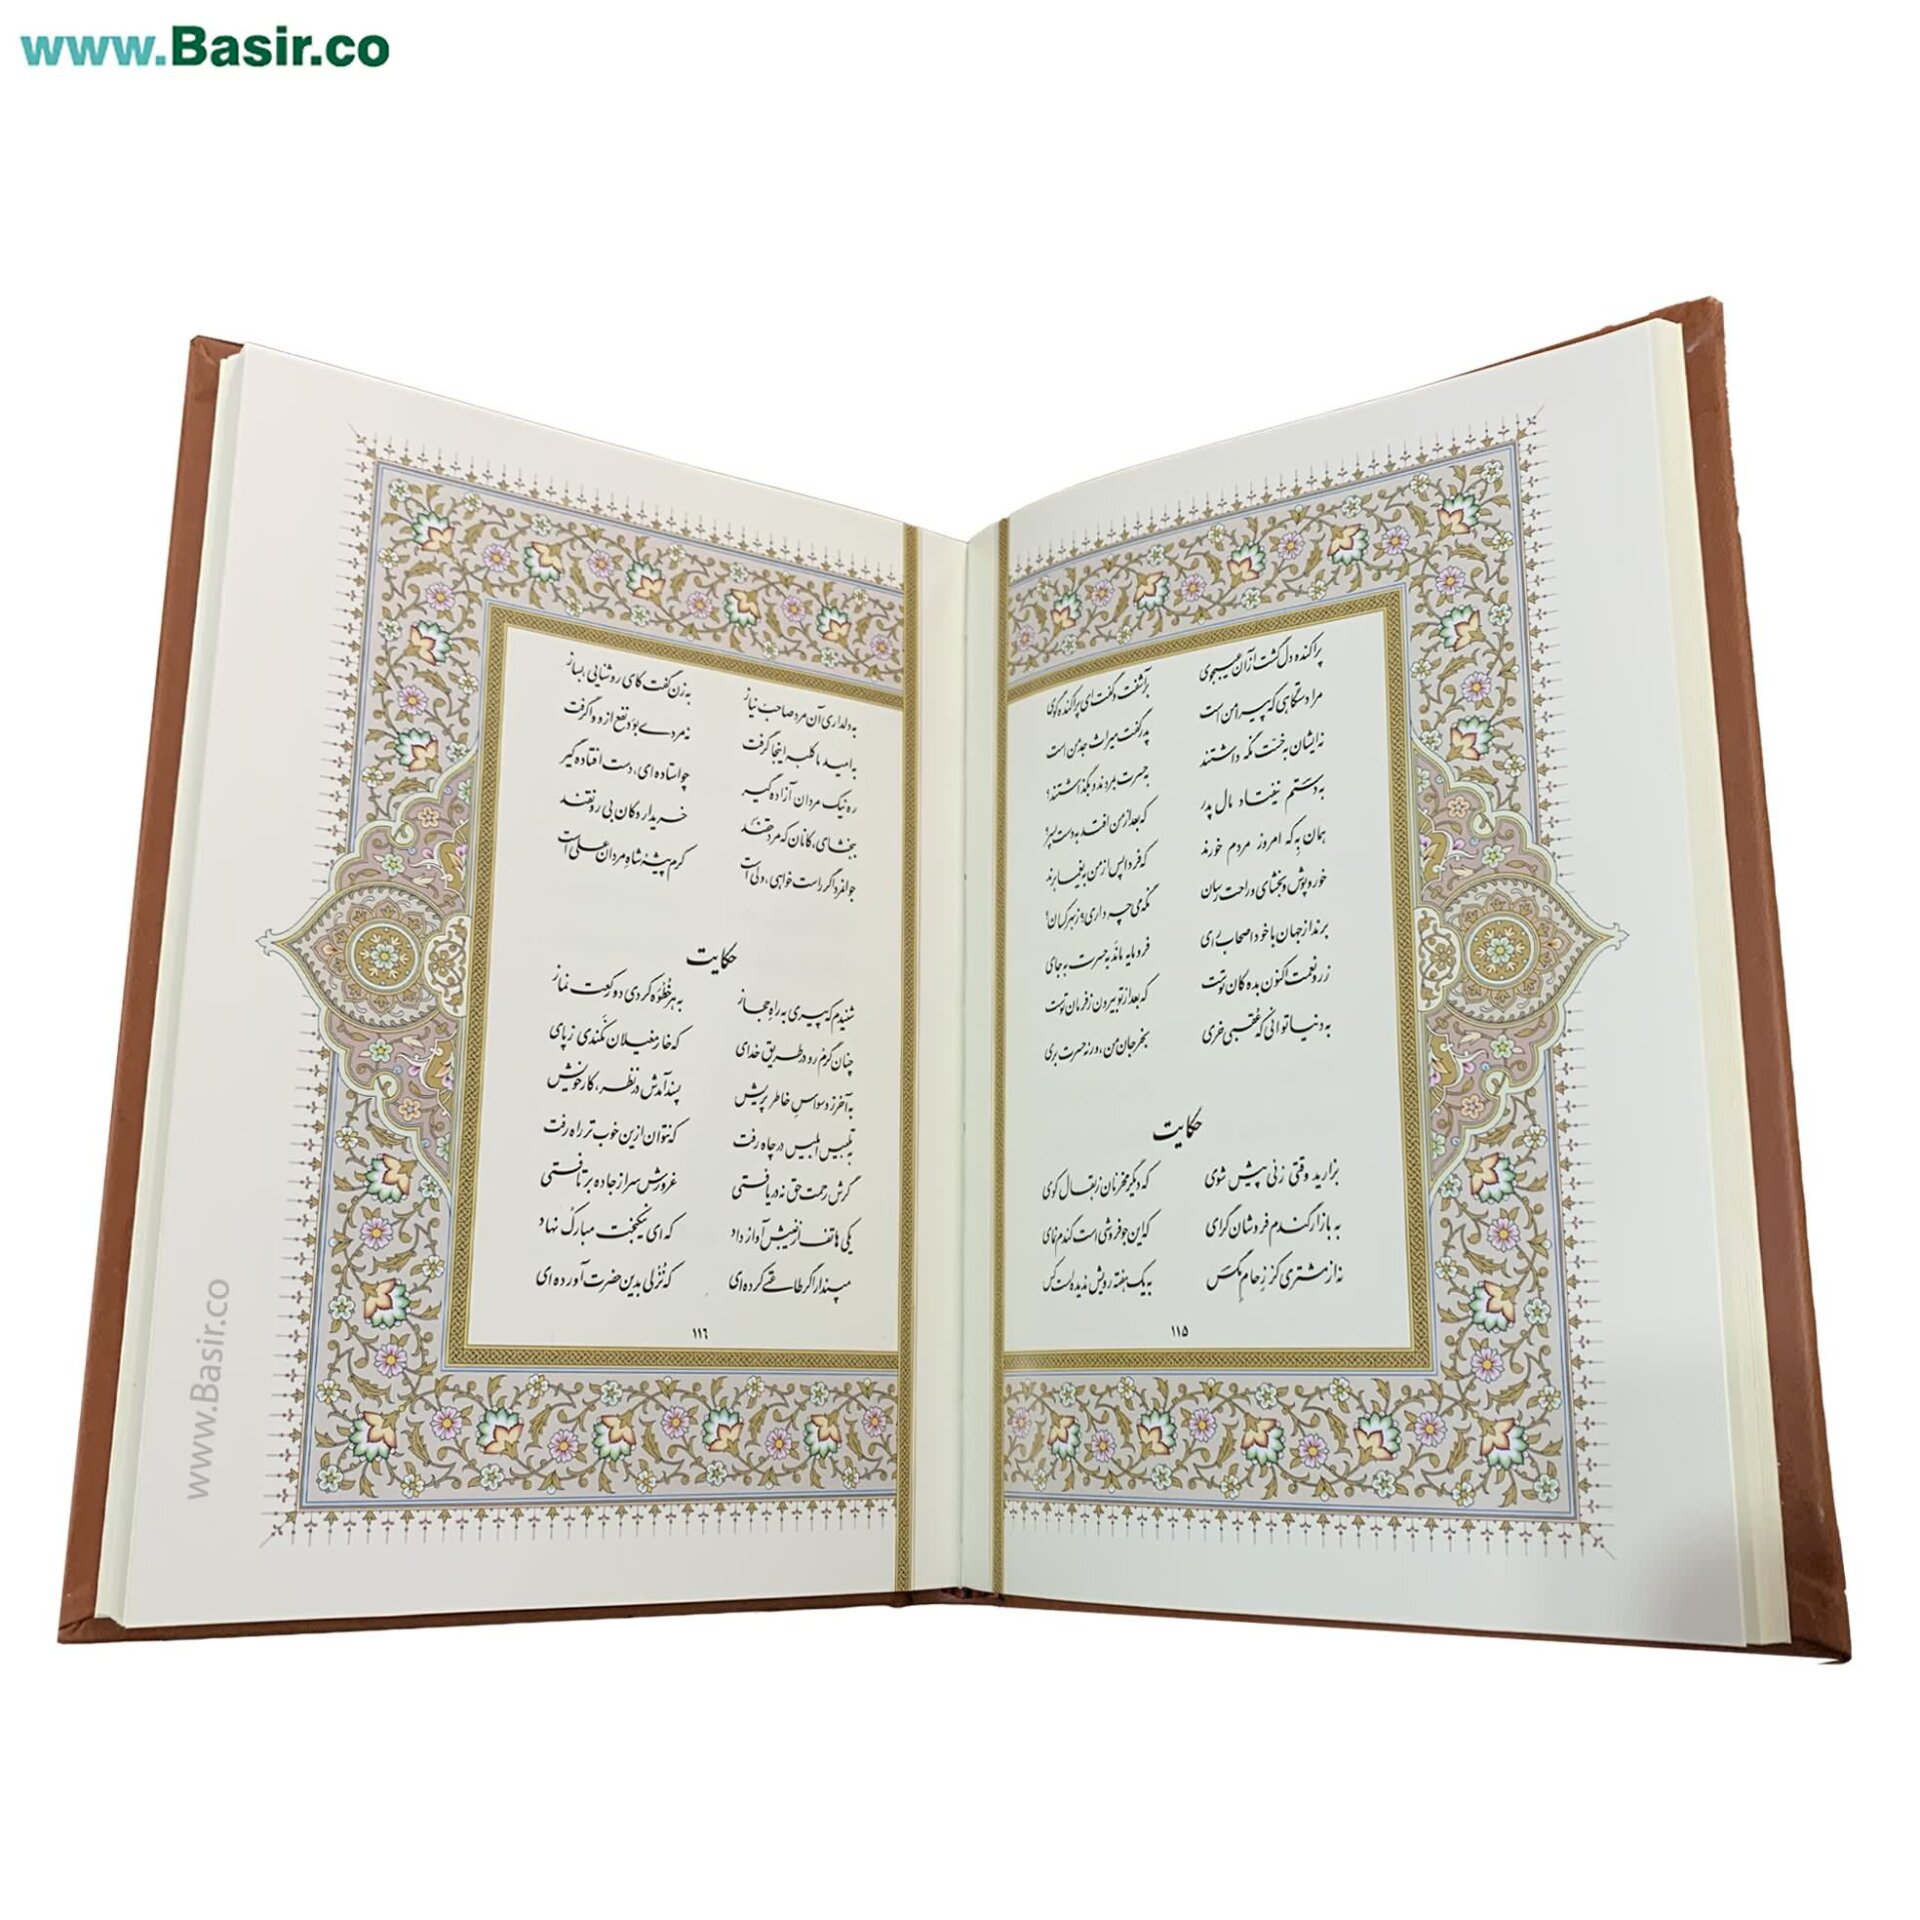 www.Basir.co
پراکنده دل گشت از آن عیبجوی برآشفت و گفت ای پراکنده گوی
مرا دستگاهی که پیرامن است پدر گفت میراث جد من است
نه ایشان به خست نگه داشتند به حسرت بمردند و بگذاشتند؟
به دستم نیفتاد مال پدر که بعد از من افتد به دست پسر؟
همان بِه که امروز مردم خورند که فردا پس از من به یغما برند
خور و پوش و بخشای و راحت رسان نگه می چه داری ز بهر کسان؟
برند از جهان با خود اصحاب رای فرومایه ماند به حسرت به جای
زر و نعمت اکنون بده کان توست که بعد از تو بیرون ز فرمان توست
به دنیا توانی که عُقبی خری بخر جان من، ورنه حسرت بری
حکایت
بزارید وقتی زنی پیش شوی که دیگر مخر نان ز بقال کوی
به بازار گندم فروشان گرای که این جو فروشی است گندم نمای
نه از مشتری کز زِحامِ مگس به یک هفته رویش ندیده است کس
۱۱۵
به دلداری آن مرد صاحب نیاز به زن گفت کای روشنایی، بساز
به امید ما کلبه اینجا گرفت نه مردی بود نفع از او واگرفت
ره نیک مردان آزاده گیر چو استاده ای، دست افتاده گیر
ببخشای، کانان که مرد حقند خریدار دکان بی رونقند
جوانمرد اگر راست خواهی، ولی است کرم پیشهٔ شاه مردان علی است
حکایت
شنیدم که پیری به راه حجاز به هر خُطْوَه کردی دو رکعت نماز
چنان گرم رو در طریق خدای که خار مغیلان نکندی ز پای
به آخر ز وسواسِ خاطر پریش پسند آمدش در نظر، کار خویش
به تلبیس ابلیس در چاه رفت که نتوان از این خوب تر راه رفت
گرش رحمت حق نه دریافتی غرورش سر از جاده بر تافتی
یکی هاتف از غیبش آواز داد که ای نیکبخت مبارک نهاد
مپندار اگر طاعتی کرده ای که نُزلی بدین حضرت آورده ای
۱۱۶
www.Basir.co